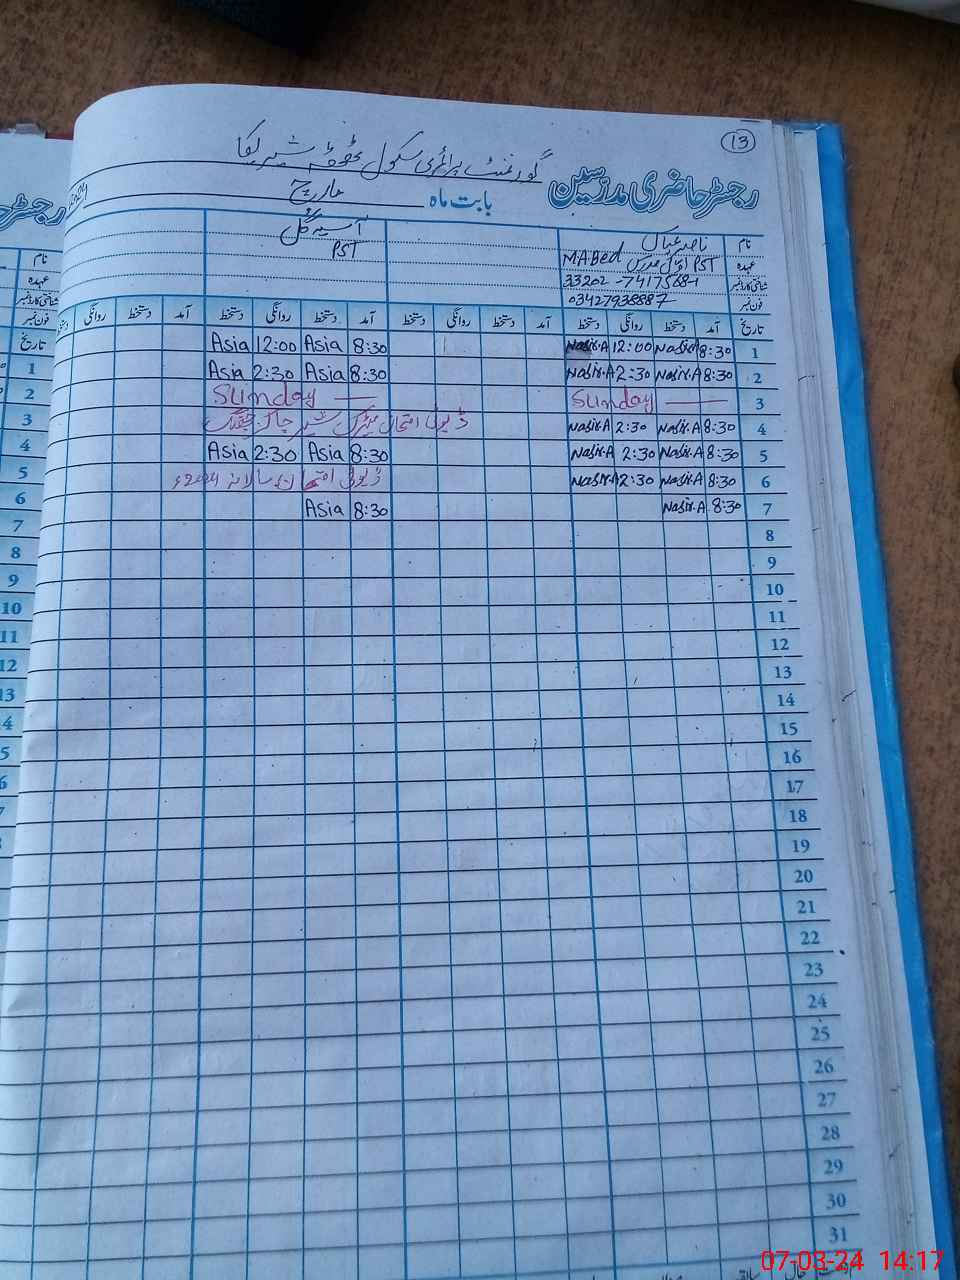 13
گورنمنٹ پرائمری سکول ٹھٹھہ شیریکا
رجسٹر حاضری مدرسین بابت ماہ مارچ 2024
نام ناصر عباس آسیہ گل
عہدہ M.A Bed اوّل مدرس PST PST
شناختی کارڈ نمبر
فون نمبر 03427938887
تاریخ آمد دستخط روانگی دستخط آمد دستخط روانگی دستخط آمد دستخط روانگی دستخط آمد دستخط روانگی
1 8:30 Nasir.A 12:00 Nasir.A 8:30 Asia 12:00 Asia
2 8:30 Nasir.A 2:30 Nasir.A 8:30 Asia 2:30 Asia
3 Sunday Sunday
4 8:30 Nasir.A 2:30 Nasir.A ڈیوٹی امتحان میٹرک
5 8:30 Nasir.A 2:30 Nasir.A 8:30 Asia 2:30 Asia
6 8:30 Nasir.A 2:30 Nasir.A ڈیوٹی امتحان سالانہ 2024ء
7 8:30 Nasir.A 8:30 Asia
8
9
10
11
12
13
14
15
16
17
18
19
20
21
22
23
24
25
26
27
28
29
30
31
07-03-24 14:17